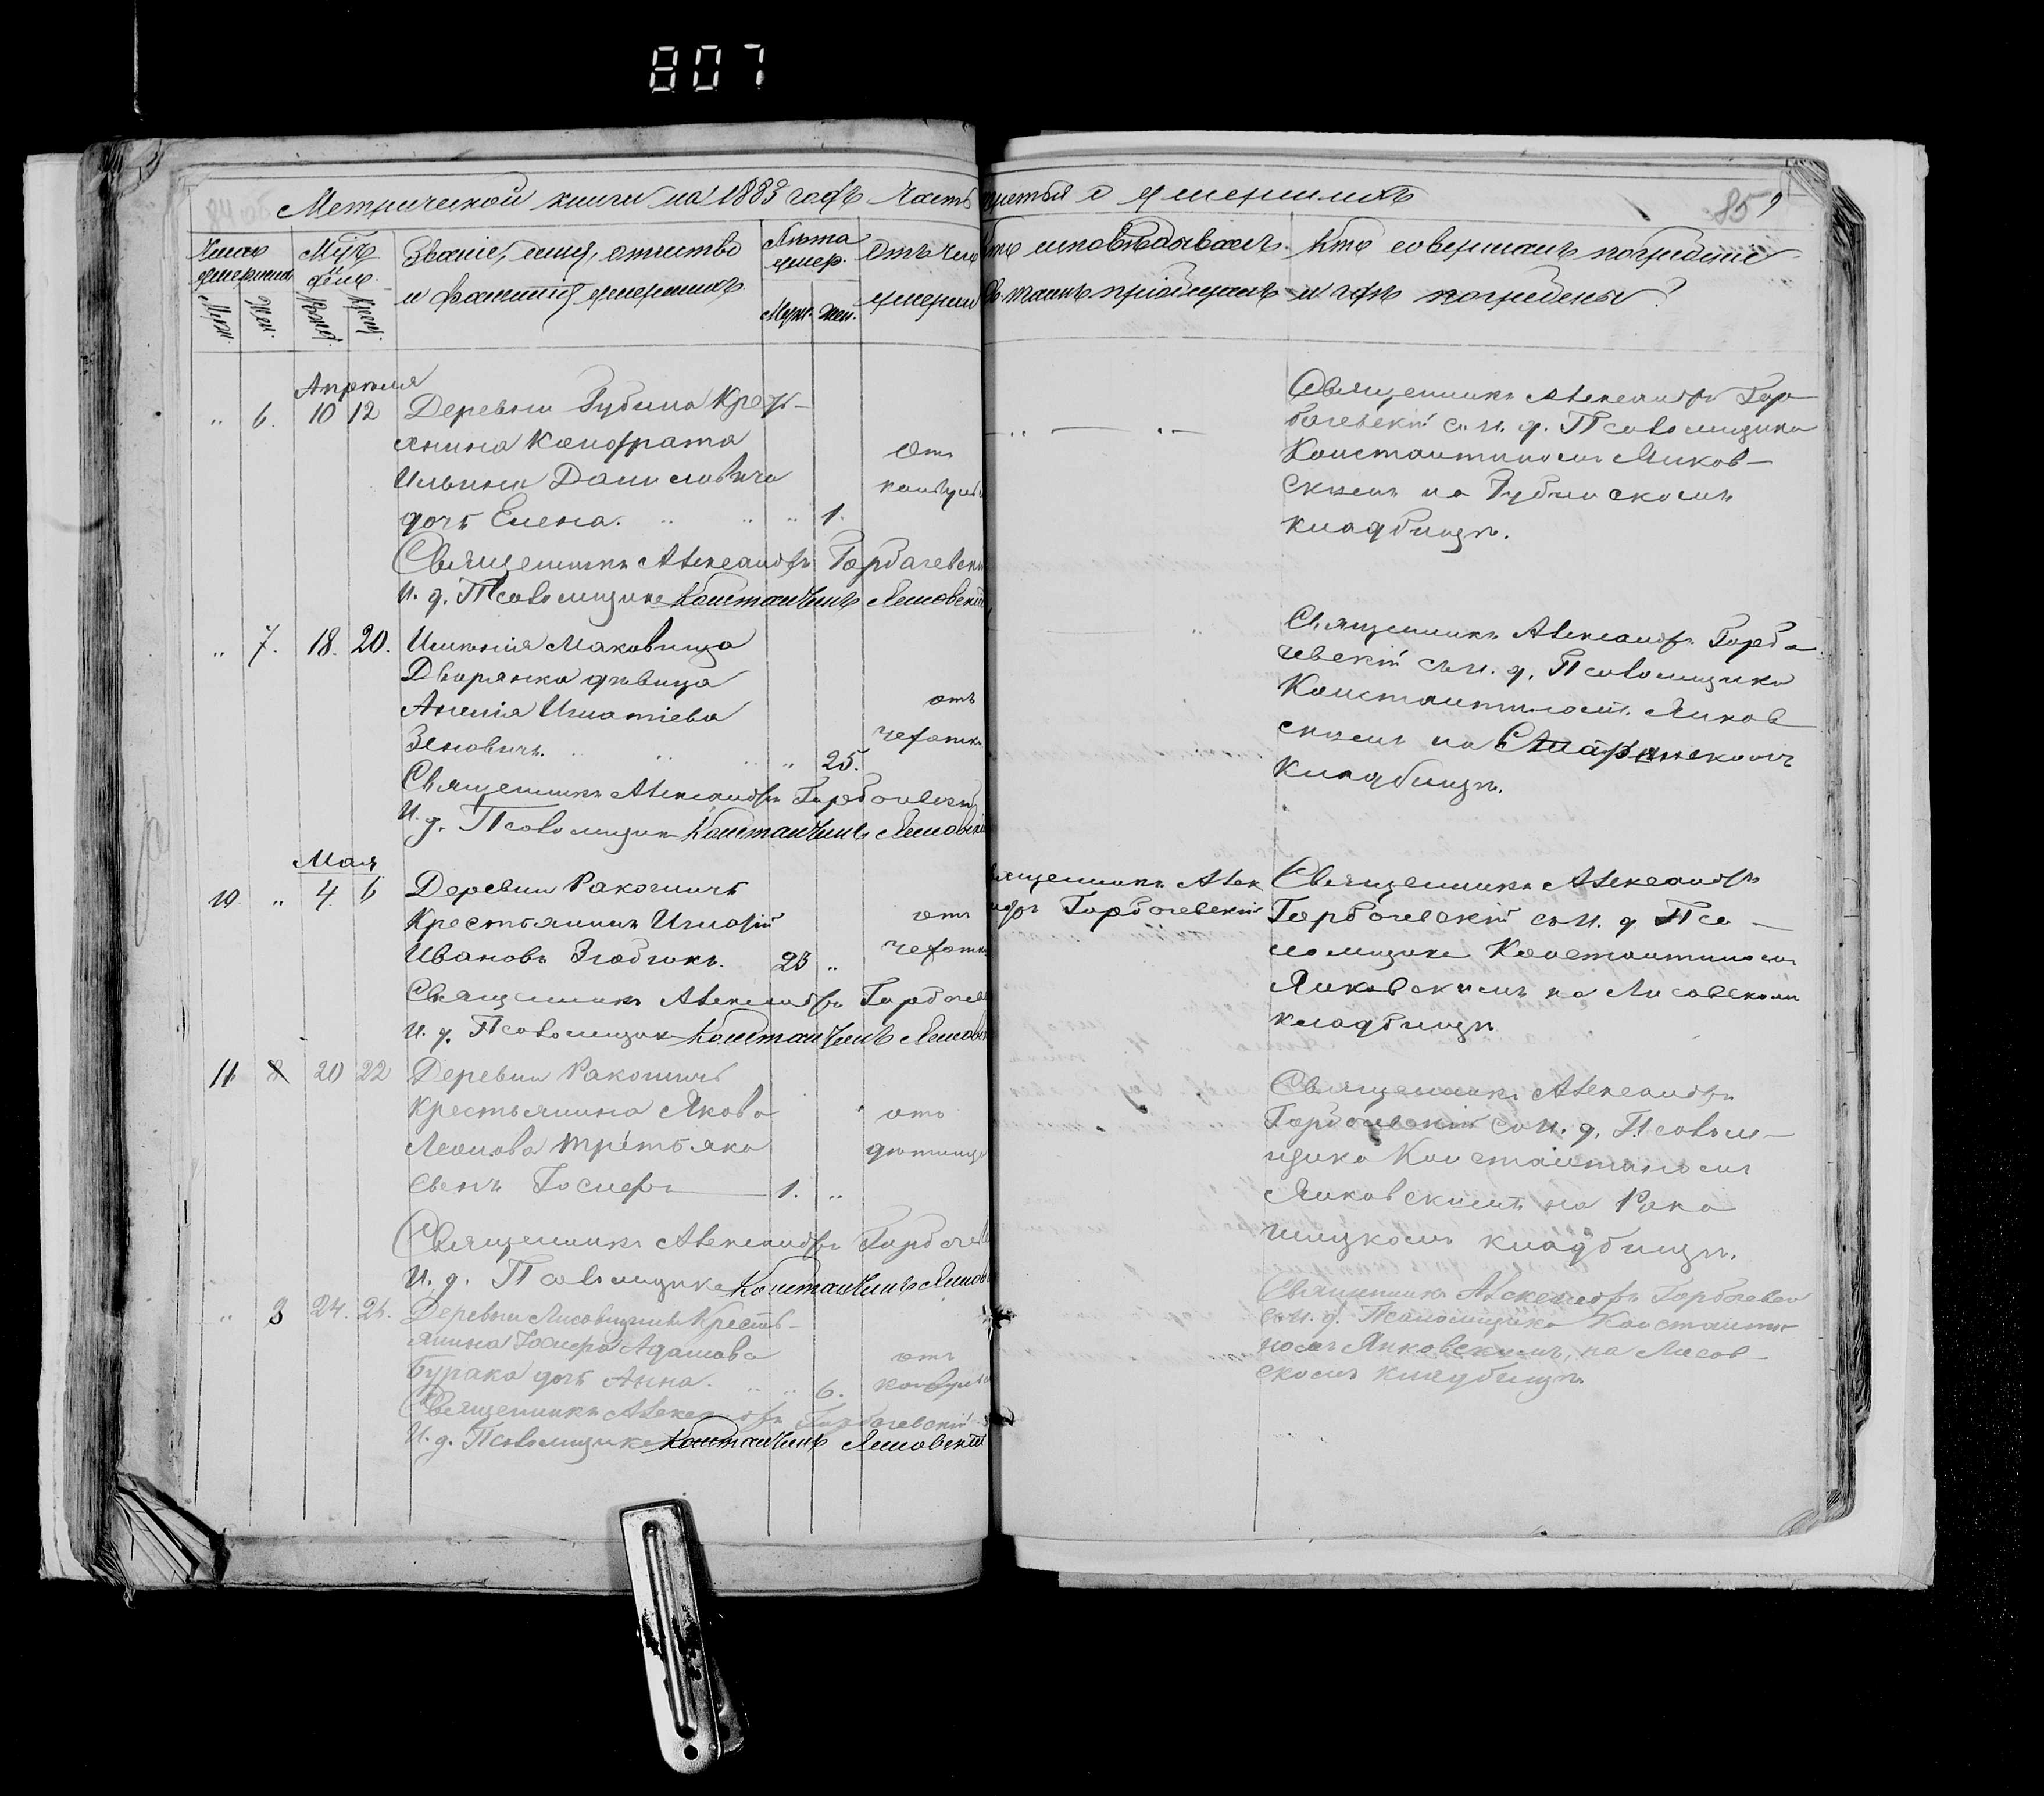 807
Метрической книги на 1883 годъ Часть третья о умершихъ
85
Число умершихъ
Муж.
Жен.
Мѣс. день
Званіе, имя, отчество и фамилія умершихъ
Лѣта умер.
Муж. Жен.
Отъ чего умерли
Кто исповѣдывалъ и приобщалъ
Кто совершалъ погребеніе и гдѣ погребены?
Апрѣля
„ 6. 10 12 Деревни Губина Кресть-
янина Кондрата
Ильина Даниловича
дочь Елена. 1.
отъ
Священникъ Александръ Горбачевскій
И. д. Псаломщика Константинъ Янковскій
Священникъ Александръ Гор-
бачевскій съ и. д. Псаломщика
Константиномъ Янков-
скимъ на Губинскомъ
кладбищѣ.
„ 7. 18. 20. Имѣнія Маковища
Дворянка дѣвица
Анелія Игнатіева
Зеновичъ. 25.
отъ
чахотки
Священникъ Александръ Горбачевскій
И. д. Псаломщика Константинъ Янковскій
Священникъ Александръ Горба-
чевскій съ и. д. Псаломщика
Константиномъ Янков-
скимъ на
кладбищѣ.
Мая
10. „ 4 6 Деревни Ракогиичъ
Крестьянинъ Игнатій
Ивановъ 23 „
отъ
чахотки
Священникъ Александръ Горбачевскій
Священникъ Александръ Горбачевскій
И. д. Псаломщика Константинъ Янковскій
Священникъ Александръ
Горбачевскій съ и. д. Пса-
ломщика Константиномъ
Янковскимъ на Лисовскомъ
кладбищѣ
11 8 20 22 Деревни
Крестьянина Якова
Леонова Третьяка
сынъ Іосифъ 1. „
отъ
Священникъ Александръ Горбачевскій
И. д. Псаломщика Константинъ Янковскій
Священникъ Александръ
Горбачевскій съ и. д. Псалом-
щика Константиномъ
Янковскимъ на
кладбищѣ.
„ 8 24. 26. Деревни Крестья-
янина Іосифа Адамова
Бурака дочь Анна. 6.
отъ
Священникъ Александръ Горбачевскій
И. д. Псаломщика Константинъ Янковскій
Священникъ Александръ Горбачевскій
съ и. д. Псаломщика Константи-
номъ Янковскимъ, на Лисов-
скомъ кладбищѣ.